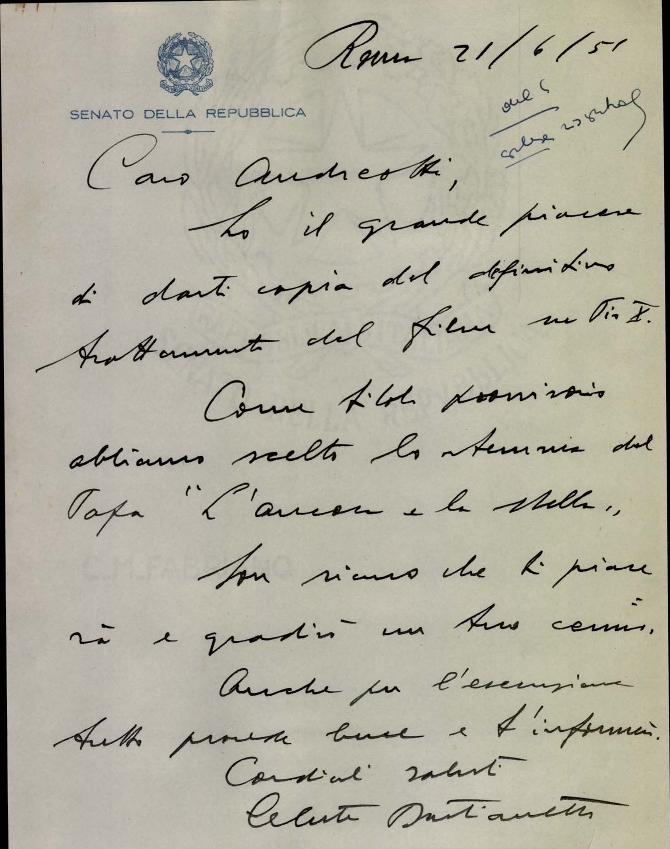 Roma 21/6/51
SENATO DELLA REPUBBLICA
Caro Andreotti,
ho il grande piacere
di darti copia del definitivo
trattamento del film su Pio X.
Come titolo provvisorio
abbiamo scelto lo stemma del
Papa "L'ancora e la stella"
Son sicuro che ti piace
rà e gradirò un tuo cenno.
Anche per l'esecuzione
tutto procede bene e t'informerò.
Cordiali saluti
Celeste Bastianetto